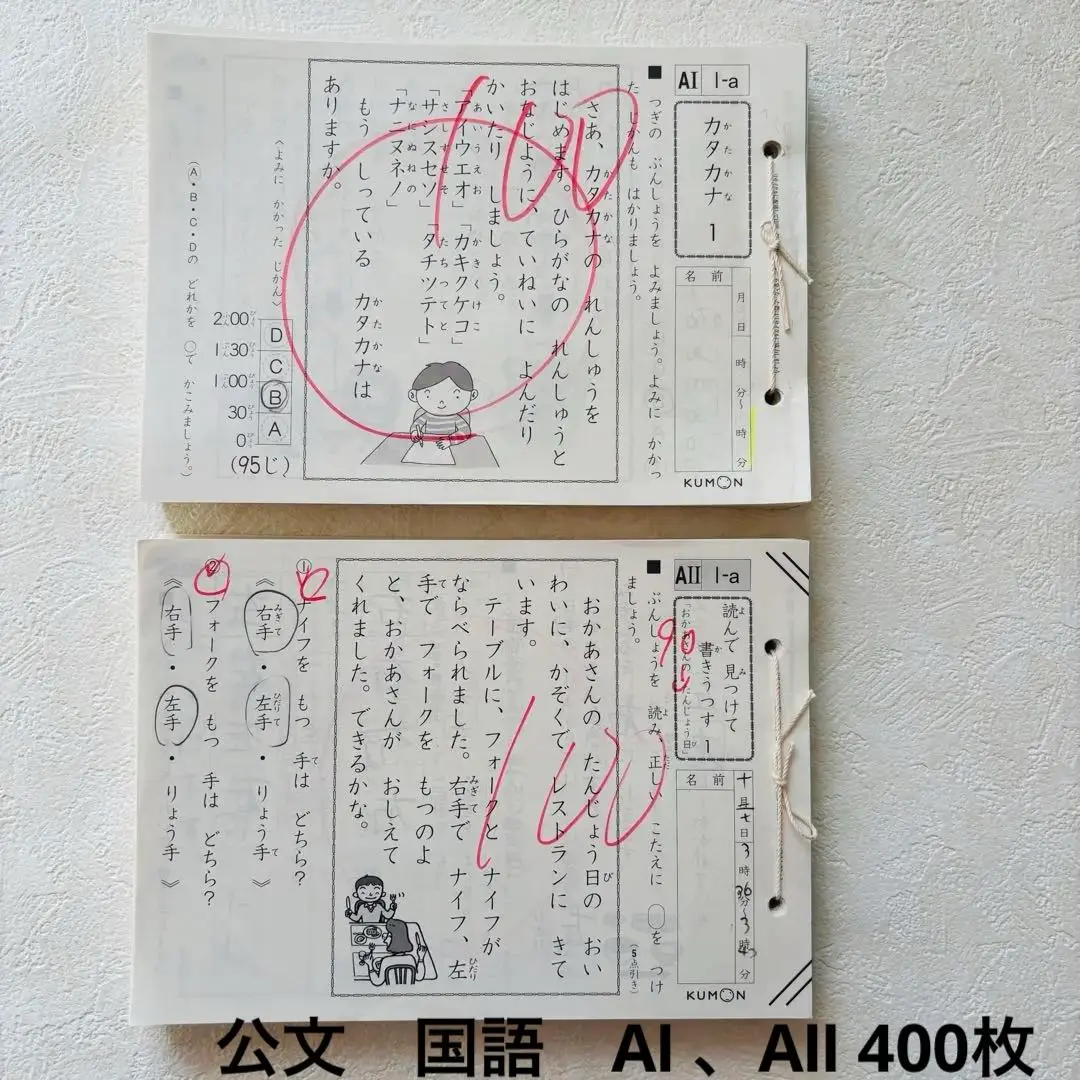 AI 1-a
カタカナ 1
名前
月 日 時 分～ 時 分
KUMON
■ つぎの ぶんしょうを よみましょう。よみに かかっ
た じかんも はかりましょう。
さあ、カタカナの れんしゅうを
はじめます。ひらがなの れんしゅうと
おなじように、ていねいに よんだり
かいたり しましょう。
「アイウエオ」「カキクケコ」
「サシスセソ」「タチツテト」
「ナニヌネノ」
もう しっている カタカナは
ありますか。
100
〈よみに かかった じかん〉
2:00
1:30
1:00
30
0
D
C
B
A
(95じ)
(A・B・C・Dの どれかを ○で かこみましょう。)
AII 1-a
読んで 見つけて
書きうつす 1
「おかあさんの たんじょう日」
90
名前
十月 十日 3時 36分～3時 分
KUMON
■ ぶんしょうを 読み、正しい こたえに ○を つけ
ましょう。
(5点引き)
おかあさんの たんじょう日の おい
わいに、かぞくで レストランに きて
います。
テーブルに、フォークと ナイフが
ならべられました。右手で ナイフ、左
手で フォークを もつのよ
と、おかあさんが おしえて
くれました。できるかな。
100
① ナイフを もつ 手は どちら?
《 右手 ・ 左手 ・ りょう手 》
② フォークを もつ 手は どちら?
《 右手 ・ 左手 ・ りょう手 》
公文 国語 AI 、AII 400枚